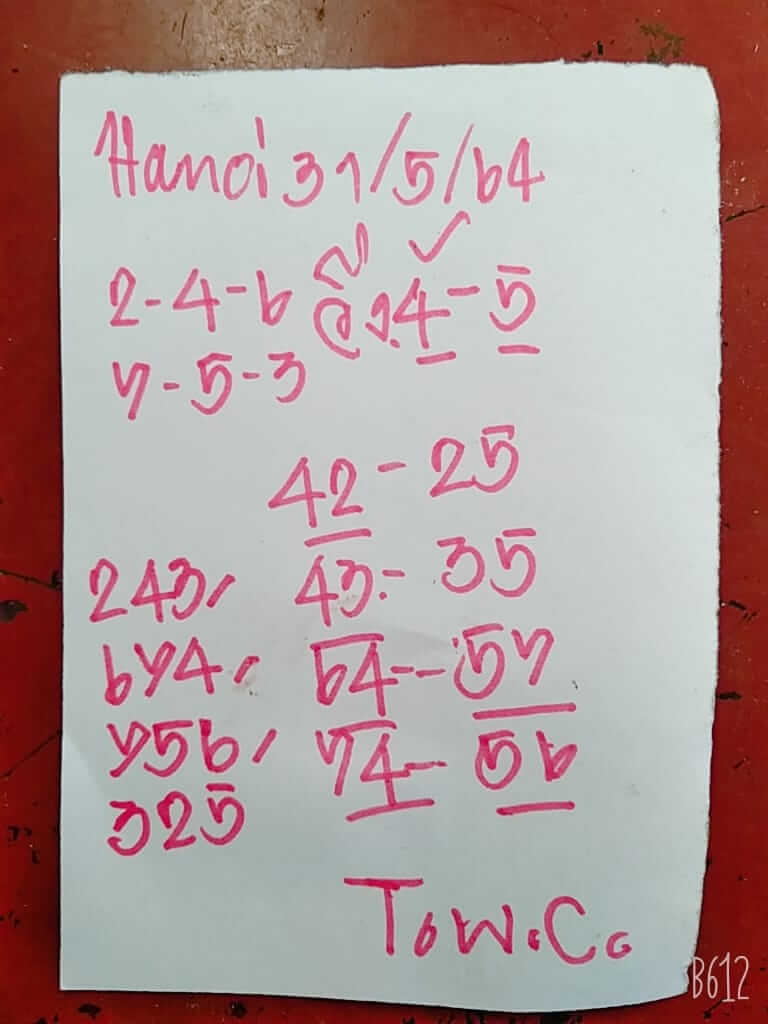 Hanoi 31/5/64
2-4-6 วิ่ง.4-5
7-5-3
42-25
243, 43-35
674, 64--57
756, 74-56
325
T.W.C.
B612